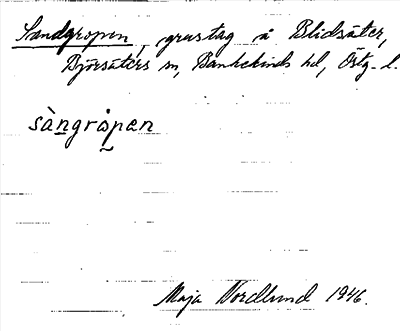 Sandgropen, grustag å Blidsäter,
Björsäters sn, Bankekinds hd, Östg. l.
sàngrὰpen
Maja Nordlund 1946.